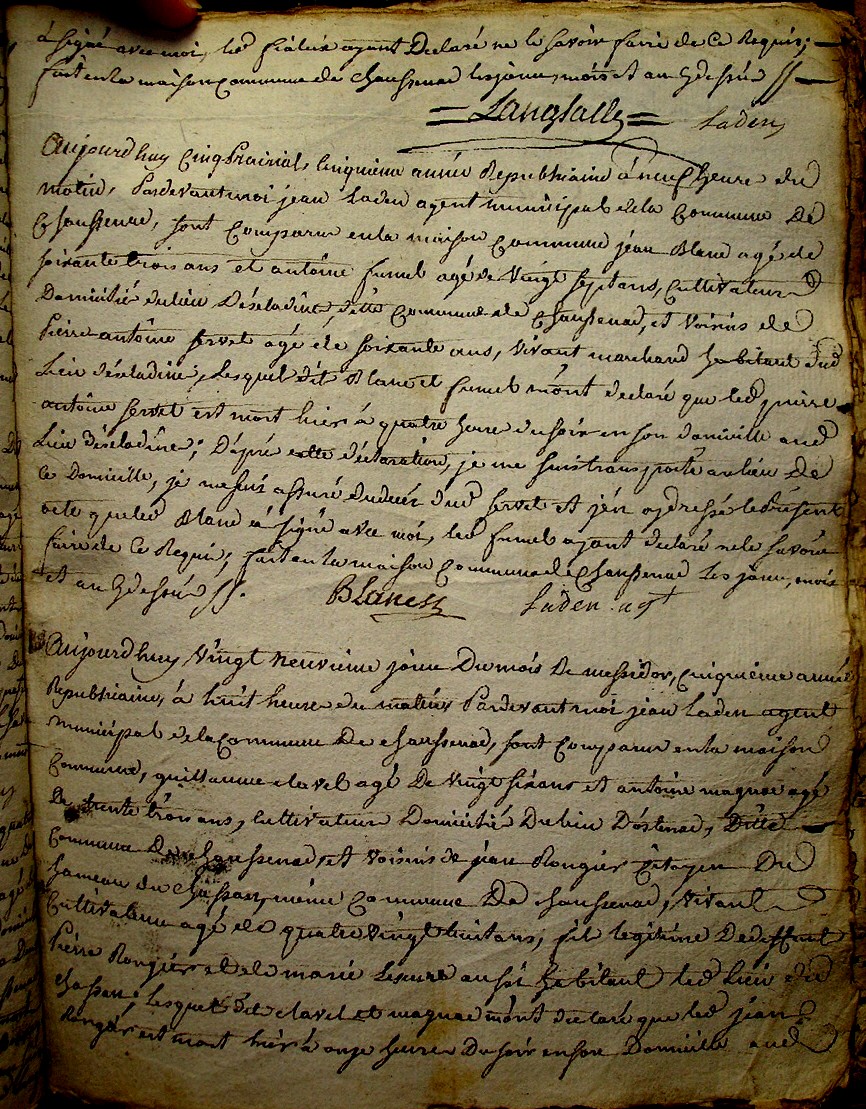 à signé avec moi, led fialeix ayant Declaré ne le savoir faire de Ce Requis;
fait en la maison Commune de Chaussenac les jour, mois et an que dessus //
= Langlade = Laden
Aujourdhuy Cinq Prairial, Cinquieme année Republicaine à neuf heure du
matin, Pardevant moi jean Laden agent municipal de la Commune De
Chaussenac, sont Comparu en la maison Commune jean Blanc agé de
soixante trois ans et antoine funel agé de Vingt sept ans, Cultivateur
Domicilié du lieu Déseladine, ditte Commune de Chaussenac, et Voisins de
Pierre antoine servet agé de soixante ans, Vivant marchand habitant dud
Lieu déseladine; Lesquel dit Blanc et funel m'ont declaré que led pierre
antoine servet est mort hier à quatre heure du soir en son domicille aud
Lieu déseladine; Dépré cette déclaration, je me suis transporté au lieu De
Ce Domicille, je me suis assuré du decès dud servet et j'en ay dressé le présent
acte que led Blanc à signé avec moi, led funel ayant declaré ne le savoir
faire de Ce Requi; fait en la maison Commune de Chaussenac Les jour, mois
et an que dessus //.
Blanc Laden agt
Aujourdhuy Vingt neuvieme jour Du mois De messidor, Cinquieme année
Republicaine, à huit heure du matin Pardevant moi jean Laden agent
municipal de la Commune De chaussenac, sont Comparu en la maison
Commune, guillaume clavel agé De vingt six ans et antoine magnac agé
De trente trois ans, Cultivateur Domicilié Du lieu Dostenac, Ditte
Commune De chaussenac, et Voisins de jean Rongier Citoyen Du
hameau du chassan, même Commune De chaussenac, Vivant
Cultivateur agé de quatre vingt huit ans, fils legitime De deffunt
Pierre Rongier et de marie Lescure aussi habitant led Lieu du
chassan; Lesquel dit clavel et magnac m'ont declaré que led jean
Rongier est mort hier à onze heure Du soir en son Domicille aud